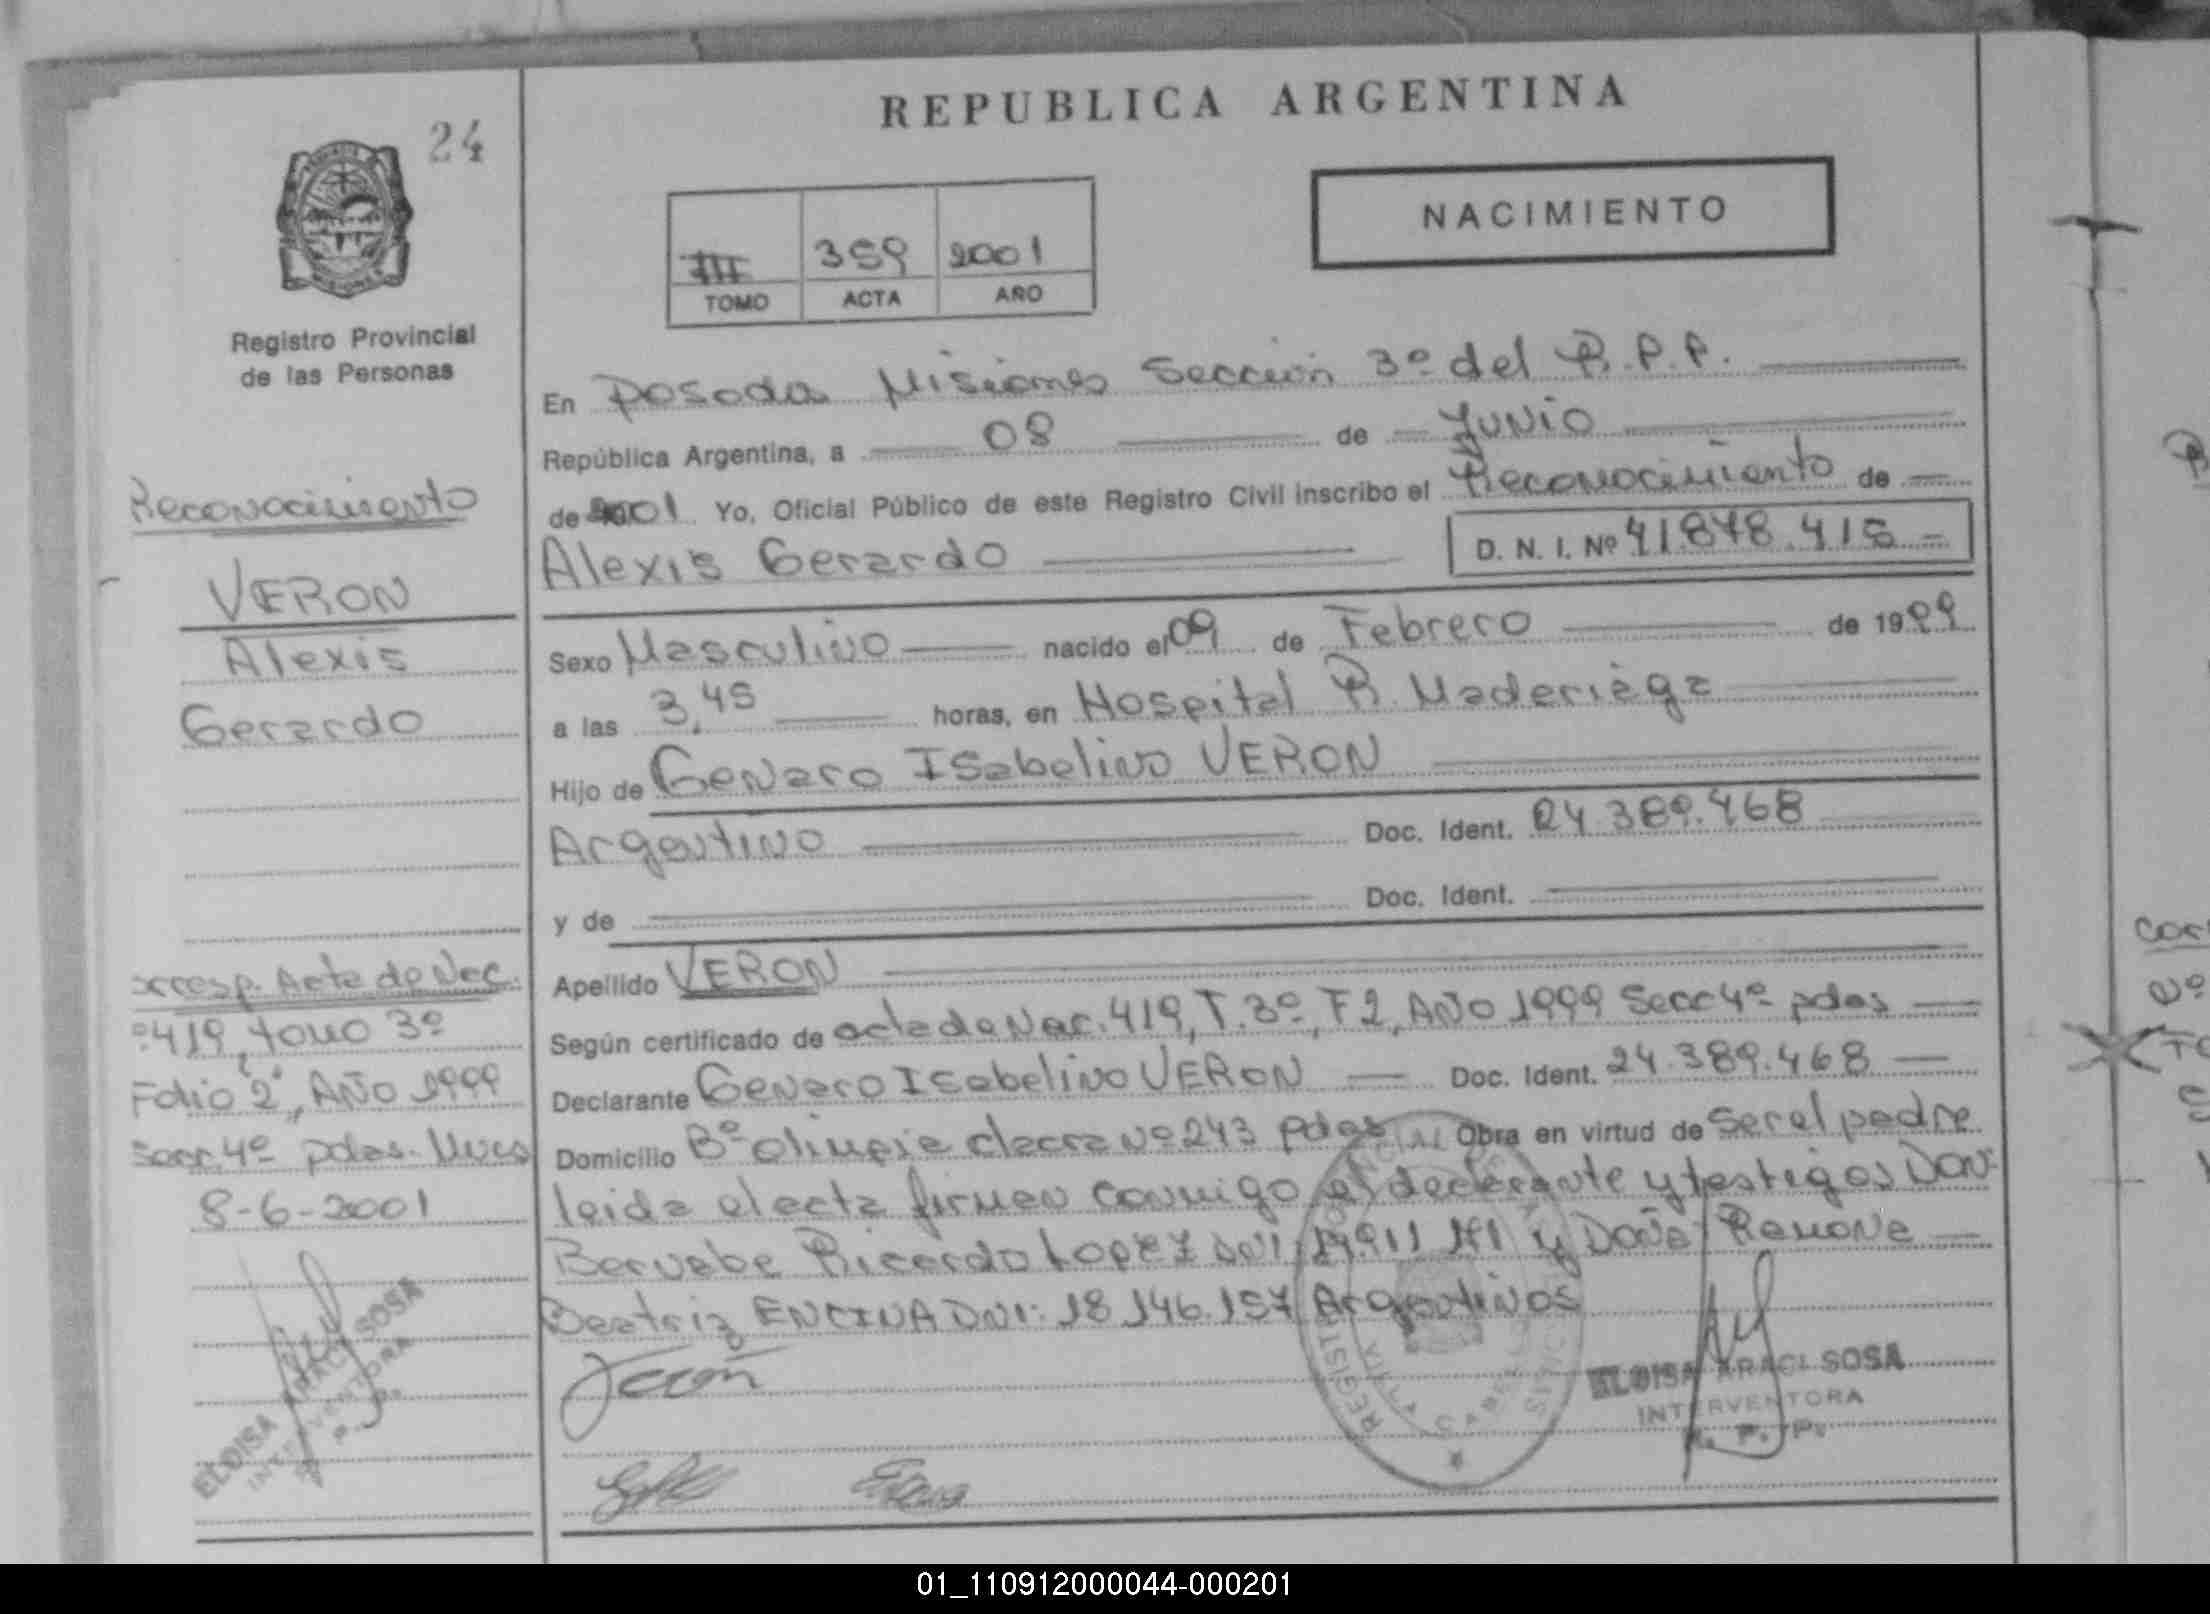 24
REPUBLICA ARGENTINA
NACIMIENTO
III 359 2001
TOMO ACTA AÑO
Registro Provincial
de las Personas
En Posadas Misiones Sección 3º del R.P.P.
República Argentina, a 08 de Junio
de 2001 Yo, Oficial Público de este Registro Civil inscribo el Reconocimiento de
Alexis Gerardo D. N. I. Nº 41.878.415
Sexo Masculino nacido el 09 de Febrero de 1999
a las 3,45 horas, en Hospital R. Madariaga
Hijo de Genaro Isabelino VERON
Argentino Doc. Ident. 24.389.468
y de Doc. Ident.
Apellido VERON
Según certificado de acta de Nac. 419, T. 3º, F 2, Año 1999 Secc 4º pdas
Declarante Genaro Isabelino VERON Doc. Ident. 24.389.468
Domicilio Bº Olimpia chacra Nº 243 Pdas Obra en virtud de ser el padre
leida el acta firman conmigo el declarante y testigos Don
Bernabe Ricardo Lopez DNI y Doña Ramona
Beatriz ENCINA DNI: 18.146.157 Argentinos
ELOISA ARACI SOSA
INTERVENTORA
R. P. P.
Reconocimiento
VERON
Alexis
Gerardo
Corresp. Acta de Nac.
º 419, tomo 3º
Folio 2º, Año 1999
Secc. 4º pdas. Mnes
8-6-2001
ELOISA ARACI SOSA
INTERVENTORA
R. P. P.
01_110912000044-000201